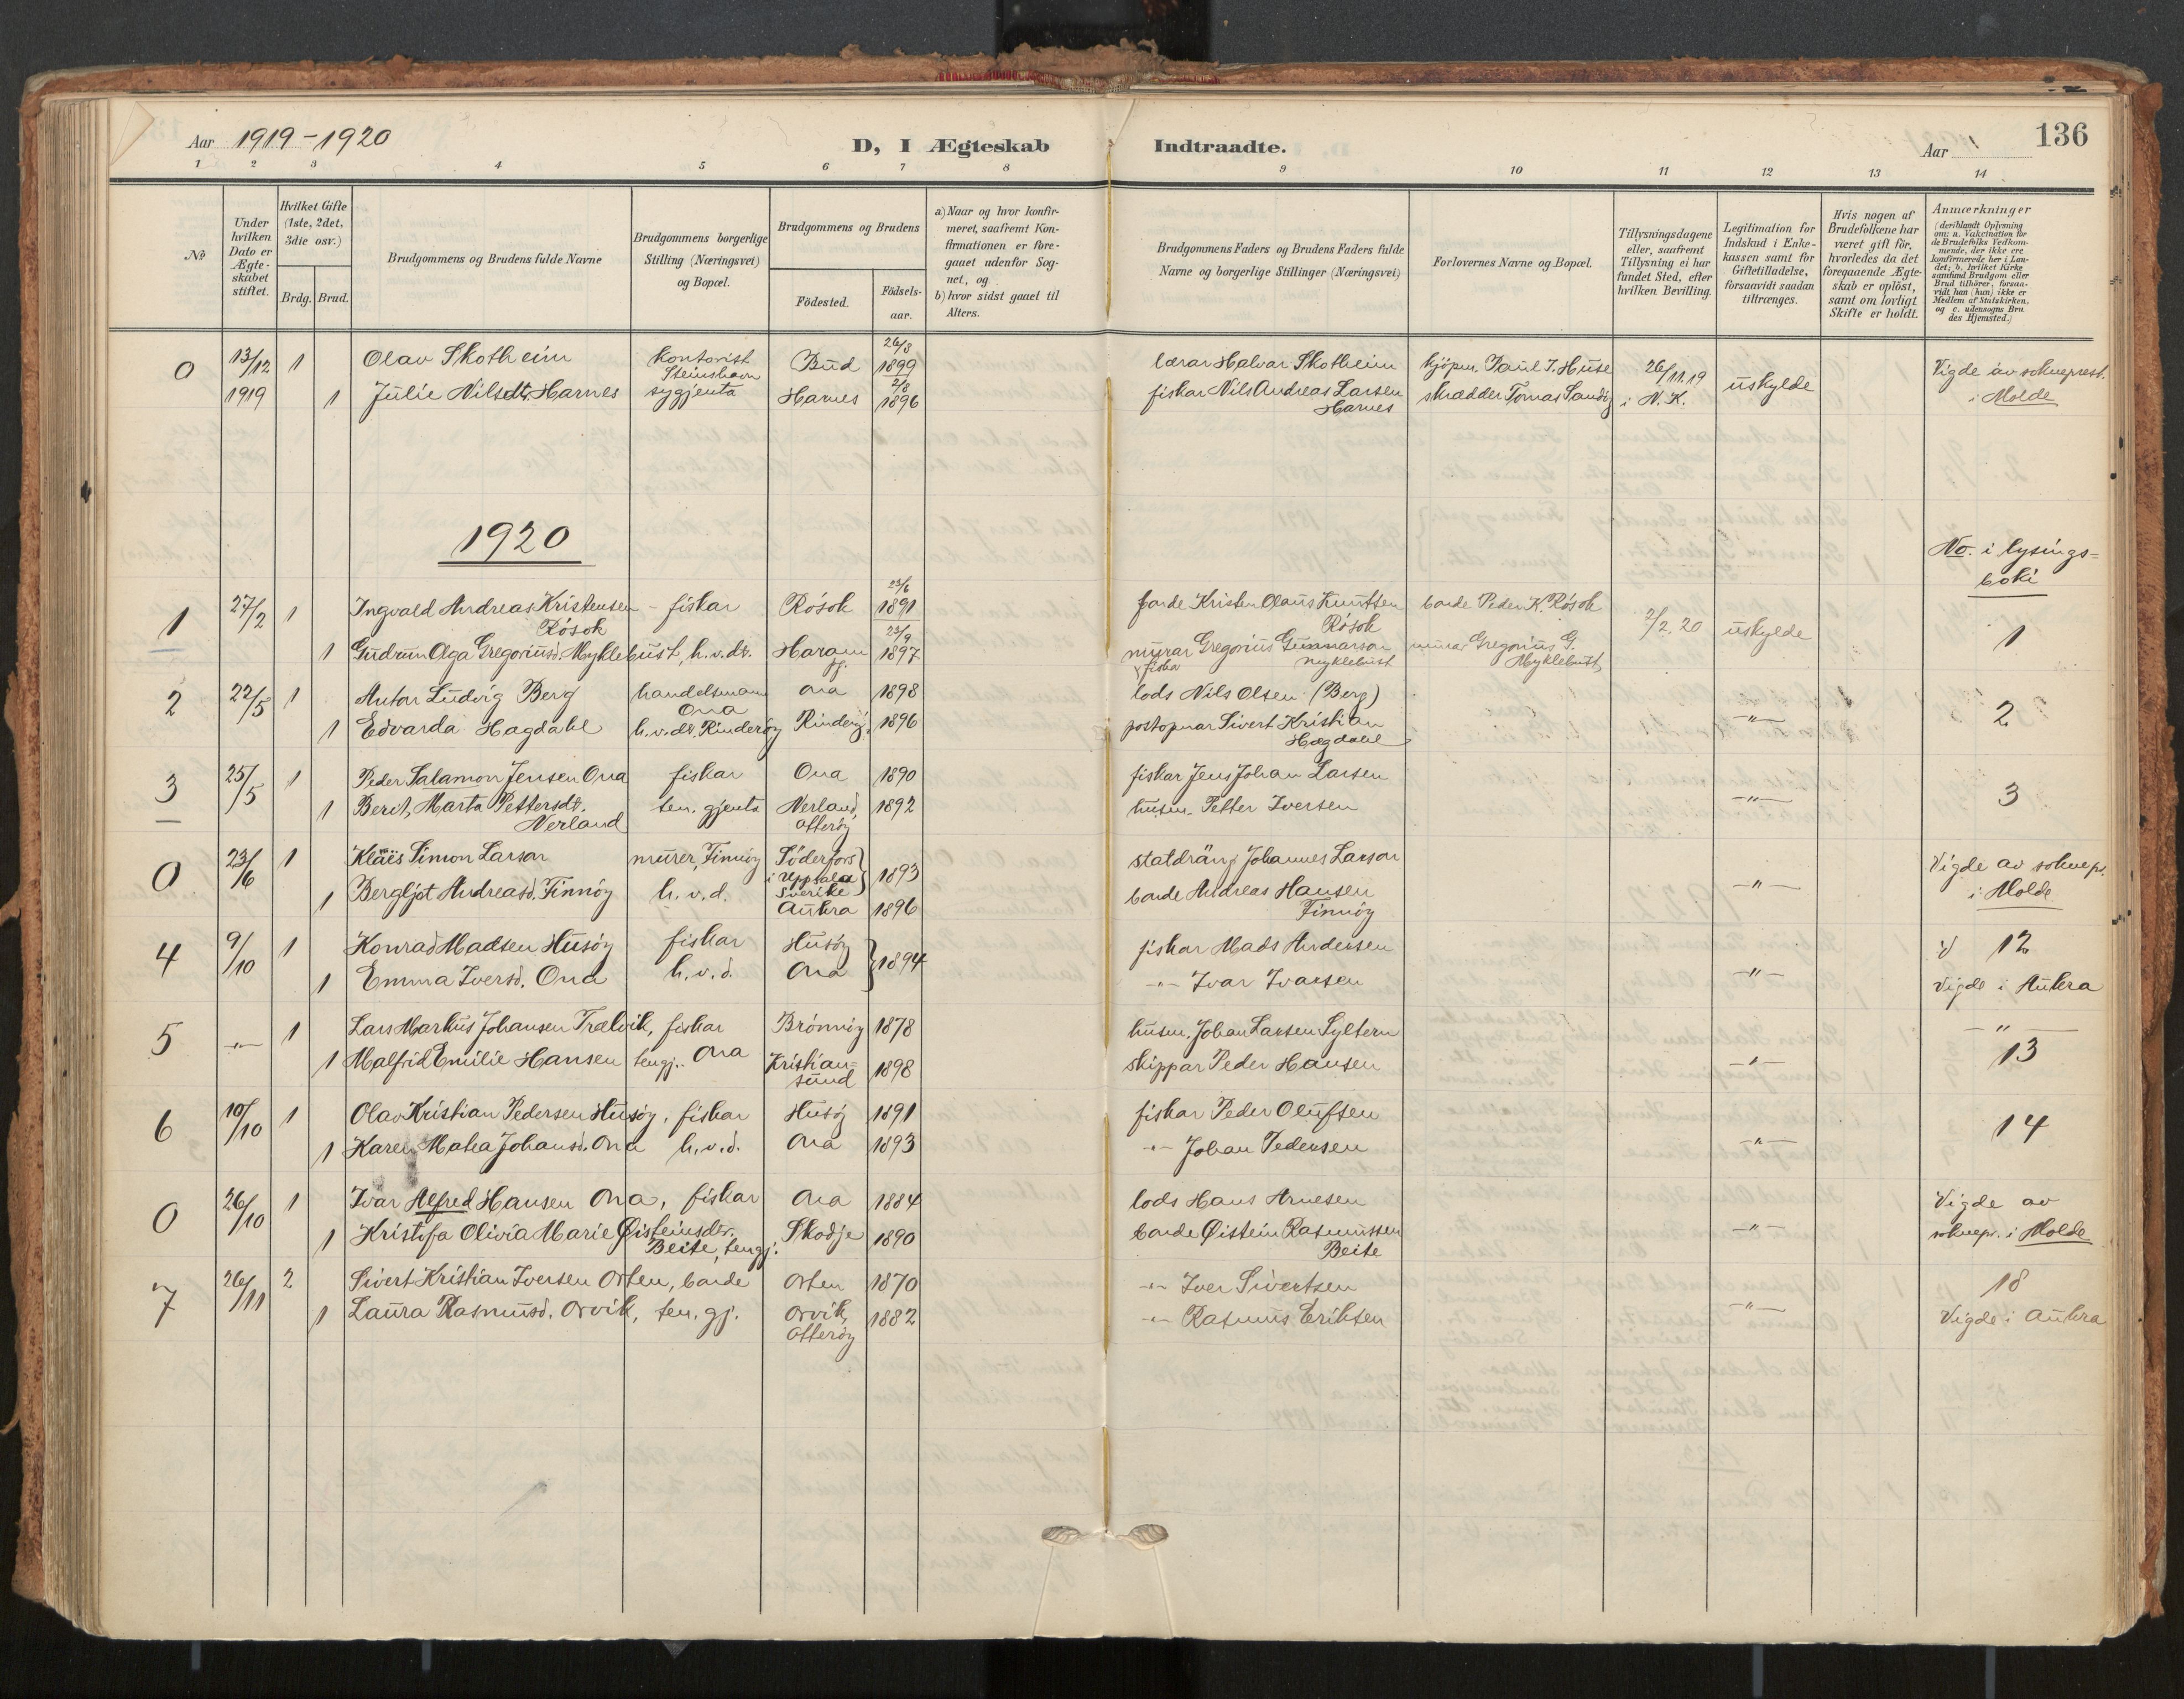 Aar 1919-1920
D, I Ægteskab Indtraadte.
Aar
136
1 2 3 4 5 6 7 8 9 10 11 12 13 14
No
Under hvilken Dato er Ægteskabet stiftet.
Hvilket Gifte (1ste, 2det, 3die osv.)
Brdg. Brud.
Brudgommens og Brudens fulde Navne
Brudgommens borgerlige Stilling (Næringsvei) og Bopæl.
Brudgommens og Brudens
Födested.
Födsels-aar.
a) Naar og hvor konfir-
meret, saafremt Kon-
firmationen er fore-
gaaet udenfor Sog-
net, og
b) hvor sidst gaaet til
Alters.
Brudgommens Faders og Brudens Faders fulde
Navne og borgerlige Stillinger (Næringsvei)
Forlovernes Navne og Bopæl.
Tillysningsdagene
eller, saafremt
Tillysning ei har
fundet Sted, efter
hvilken Bevilling.
Legitimation for
Indskud i Enke-
kassen samt for
Giftetilladelse,
forsaavidt saadan
tiltrænges.
Hvis nogen af
Brudefolkene har
været gift för,
hvorledes da det
foregaaende Ægte-
skab er oplöst,
samt om lovligt
Skifte er holdt.
Anmærkninger
(deriblandt Oplysning
om: a. Vakcination for
de Brudefolks Vedkom-
mende, der ikke ere
konfirmerede her i Lan-
det; b. hvilket Kirke
samfund Brudgom eller
Brud tilhörer, forsaa-
vidt han (hun) ikke er
Medlem af Statskirken,
og c. udensogns Bru
des Hjemsted.)
0 13/12 1 Olav Skotheim kontorist Steinshavn Bud 26/3 1899 lærar Halvar Skotheim kjöpm. Paul J. Huse 26/11.19 uskylde Vigde av sokneprest.
1919 1 Julie Nilsdt. Harnes sygjenta Harnes 2/8 1896 fiskar Nils Andreas Larsen Harnes skrædder Tomas Sandøy i N. K. i Molde
1920
No. i lysings=
boki
1 27/2 1 Ingvald Andreas Kristensen Rösok - fiskar Rösok 23/6 1891 borde Kristen Olaus Knutsen Rösok borde Peder K. Rösok 2/2.20 uskylde 1
1 Gudrun Olga Gregoriusd. Myklebust, h.v.dt. Haram 23/9 1897 murar Gregorius Gunnarson Myklebust murar Gregorius G. Myklebust
2 22/5 1 Anton Ludvig Berg handelsmann Ona Ona 1898 lods Nils Olsen (Berg) -"- 2
1 Edvarda Hagdahl h.v.dt. Rinderöy Rinderöy 1896 postopnar Sivert Kristian Hagdahl
3 25/5 1 Peder Salamon Jensen Ona fiskar Ona 1890 fiskar Jens Johan Larsen -"- 3
1 Berit Marta Pettersdt. Nerland ten. gjenta Nerland Otteröy 1892 husm. Petter Iversen
0 23/6 1 Klaës Simon Larson murer, Finnöy Söderfors i Uppsala Sverike 1893 statdräng Johannes Larson -"- Vigde av soknepr.
1 Bergljot Andreasd. Finnöy h.v.d. Aukra 1896 borde Andreas Hansen Finnöy i Molde
4 9/10 1 Konrad Madsen Husöy fiskar Husöy 1894 fiskar Mads Andersen -"- 12
1 Emma Iversd. Ona h.v.d. Ona -"- Ivar Ivarsen Vigde i Aukra
5 -"- 1 Lars Markus Johansen Trælvik, fiskar Brönnöy 1878 husm. Johan Larsen Syltern -"- -"-
1 Malfrid Emilie Hansen tengj. Ona Kristian=sund 1898 skippar Peder Hansen 13
6 10/10 1 Olav Kristian Pedersen Husöy, fiskar Husöy 1891 fiskar Peder Olufsen -"- 14
1 Karen Matea Johansd. Ona h.v.d. Ona 1893 -"- Johan Pedersen
0 26/10 1 Ivar Alfred Hansen Ona, fiskar Ona 1884 lods Hans Arnesen -"- Vigde av
1 Kristofa Olivia Marie Øisteinsdtr. Beite, tengj. Skodje 1890 borde Øistein Rasmussen Beite soknepr. i Molde
7 26/11 2 Sivert Kristian Iversen Orten, borde Orten 1870 -"- Iver Sivertsen -"- 18
1 Laura Rasmusd. Orvik, ten. gj. Orvik, Otteröy 1882 -"- Rasmus Eriksen Vigde i Aukra